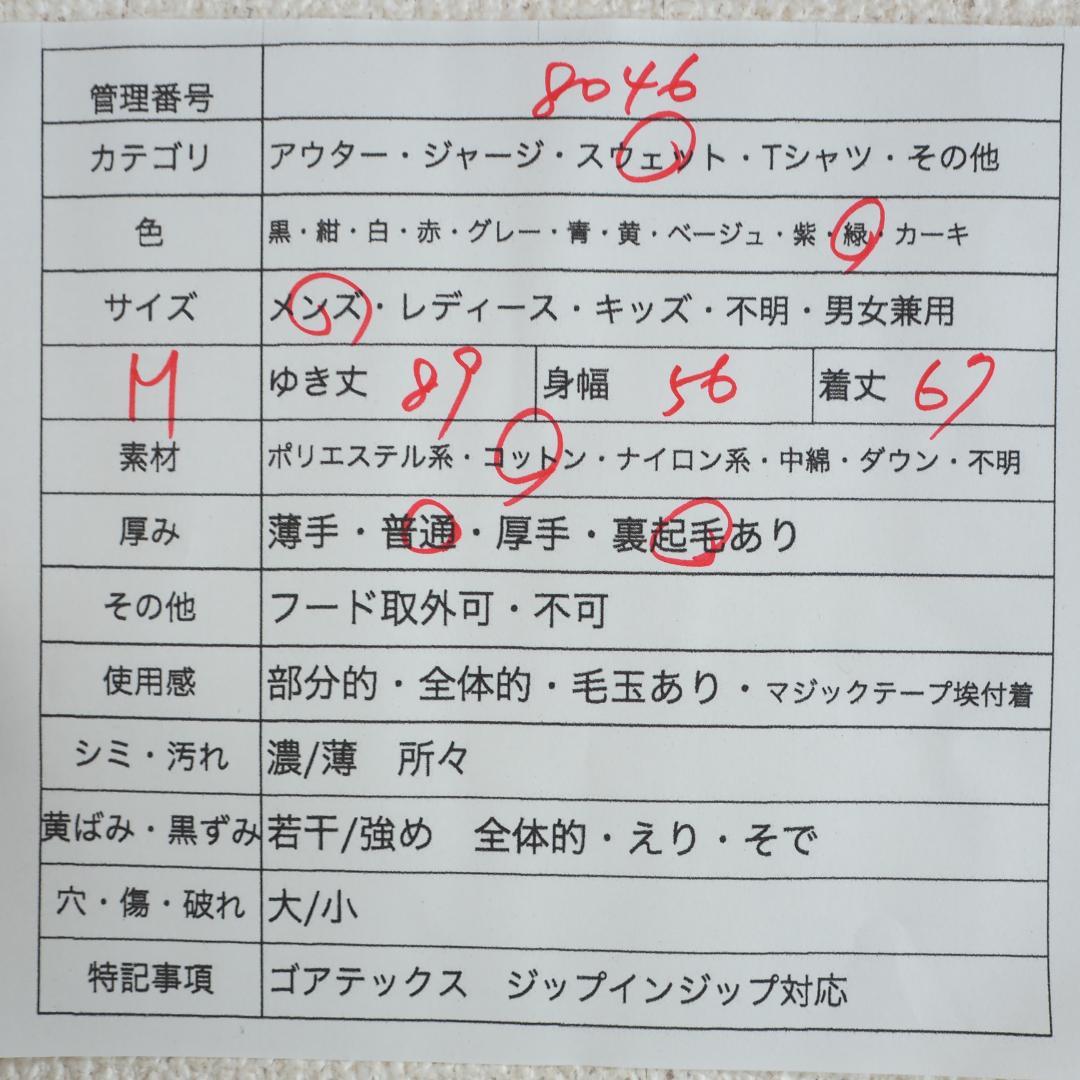 管理番号 8046
カテゴリ アウター・ジャージ・スウェット・Tシャツ・その他
色 黒・紺・白・赤・グレー・青・黄・ベージュ・紫・緑・カーキ
サイズ メンズ・レディース・キッズ・不明・男女兼用
M ゆき丈 89 身幅 56 着丈 67
素材 ポリエステル系・コットン・ナイロン系・中綿・ダウン・不明
厚み 薄手・普通・厚手・裏起毛あり
その他 フード取外可・不可
使用感 部分的・全体的・毛玉あり・マジックテープ埃付着
シミ・汚れ 濃/薄 所々
黄ばみ・黒ずみ 若干/強め 全体的・えり・そで
穴・傷・破れ 大/小
特記事項 ゴアテックス ジップインジップ対応